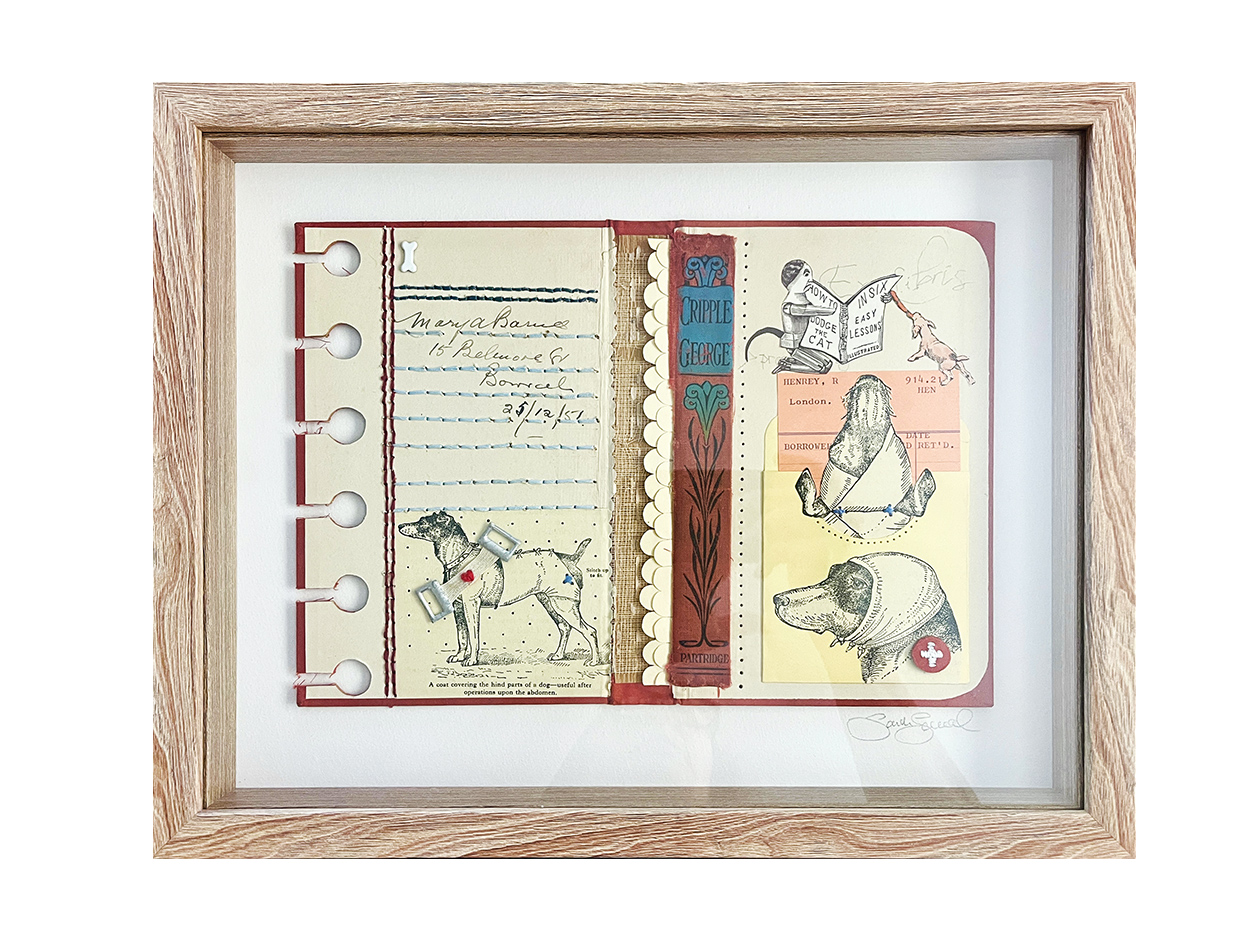 Mary A Barnes
15 Belmore St
25/12/51
Stitch up
to fit.
A coat covering the hind parts of a dog—useful after
operations upon the abdomen.
CRIPPLE
GEORGE
PARTRIDGE
Ex Libris
HOW TO
DODGE
THE
CAT
IN SIX
EASY
LESSONS
ILLUSTRATED
HENREY, R
914.21
HEN
London.
DATE
RET'D.